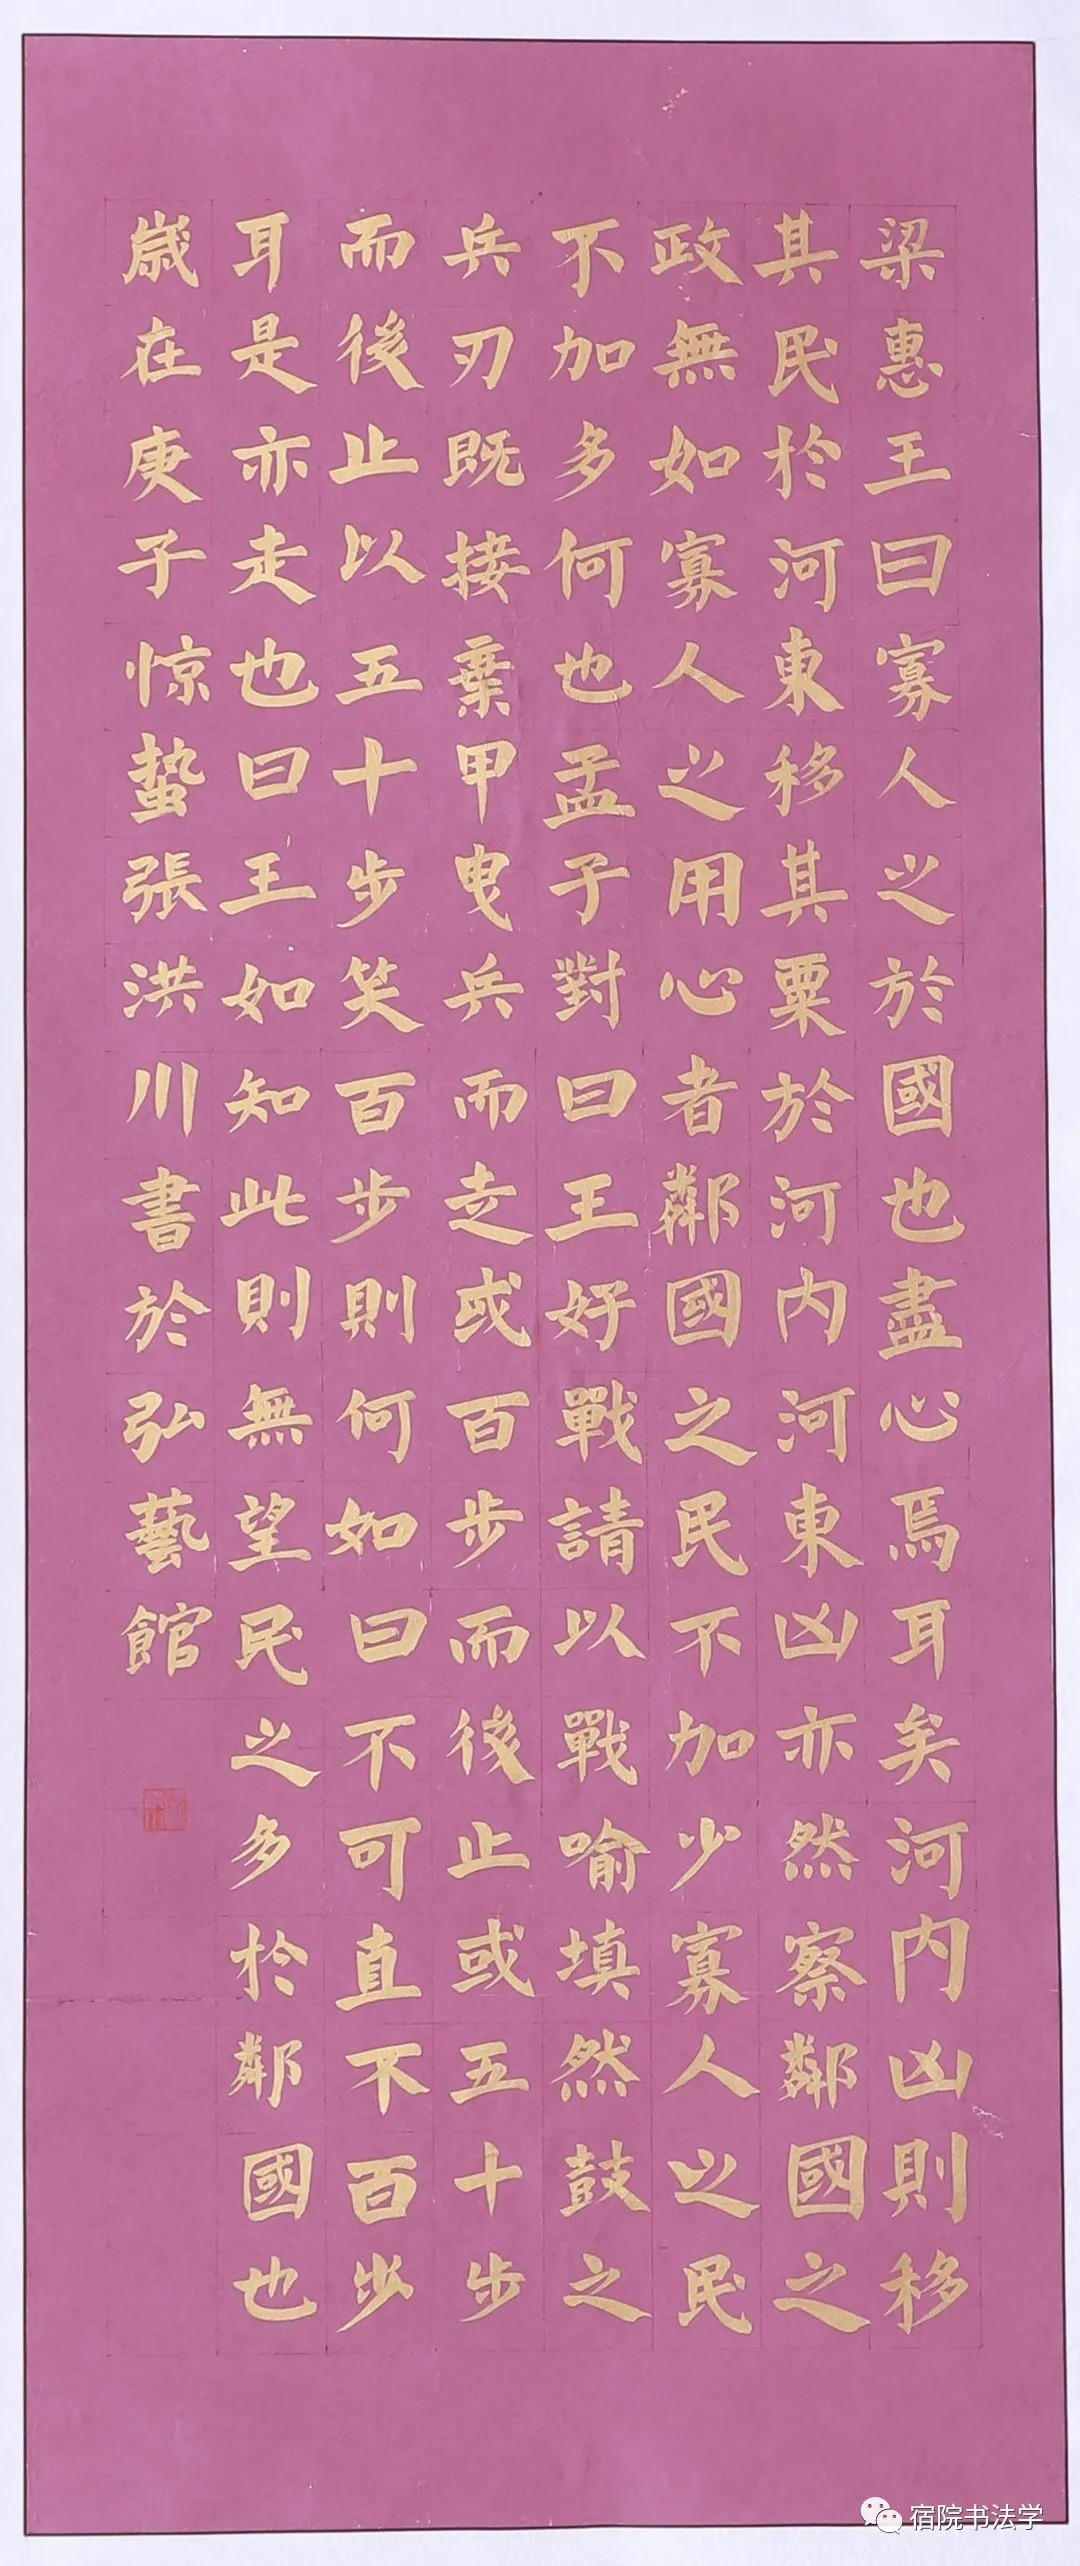 梁惠王曰寡人之於國也盡心焉耳矣河内凶則移
其民於河東移其粟於河内河東凶亦然察鄰國之
政無如寡人之用心者鄰國之民不加少寡人之民
不加多何也孟子對曰王好戰請以戰喻填然鼓之
兵刃既接棄甲曳兵而走或百步而後止或五十步
而後止以五十步笑百步則何如曰不可直不百步
耳是亦走也曰王如知此則無望民之多於鄰國也
歲在庚子惊蟄張洪川書於弘藝館
宿院书法学